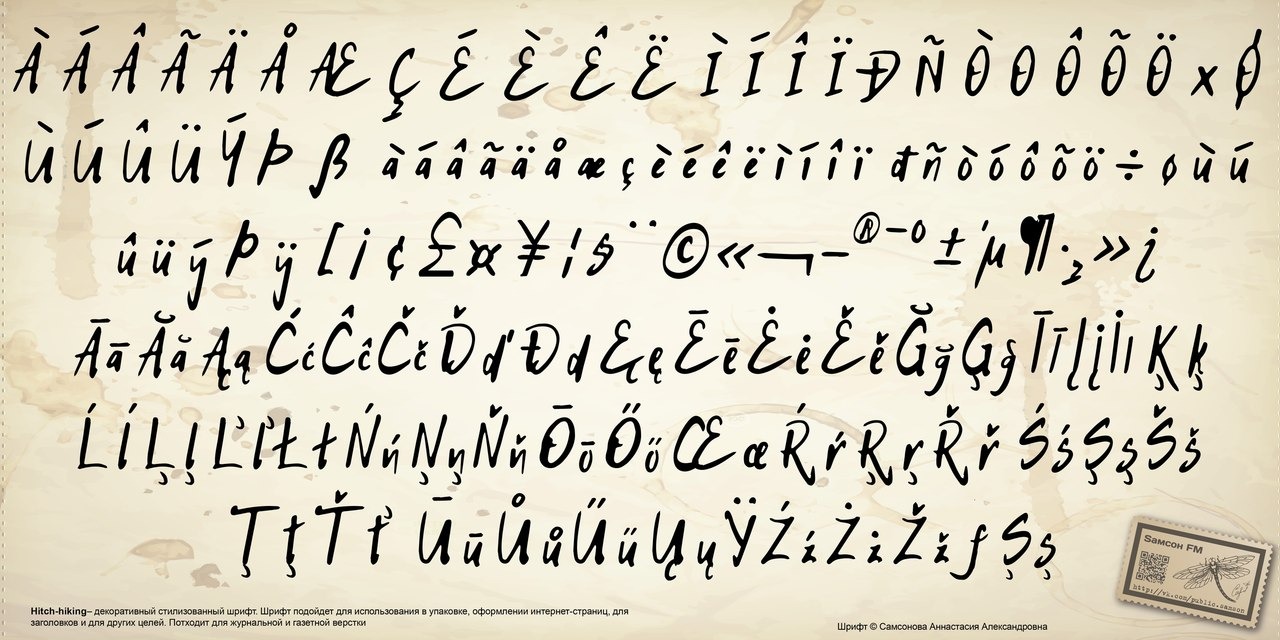 À Á Â Ã Ä Å Æ Ç É È Ê Ë Ì Í Î Ï Đ Ñ Ò O Ô Õ Ö × Ø
Ù Ú Û Ü Ý Þ ß à á â ã ä å æ ç è é ê ë ì í î ï đ ñ ò ó ô õ ö ÷ ø ù ú
û ü ý Þ ÿ [ ¡ ¢ £ ¤ ¥ ¦ § ¨ © « ¬ – ® – ° ± ´ µ ¶ · ¸ » ¿
Ā ā Ă ă Ą ą Ć ć Ĉ ĉ Č č Ď ď Đ d Ę ę Ē ē Ė ė Ě ě Ğ ğ Ģ ģ Ī ī Į į İ ı Ķ ķ
Ĺ ĺ Ļ ļ Ľ ľ Ł ł Ń ń Ņ ņ Ň ň Ō ō Ő ő Œ œ Ŕ ŕ Ŗ ŗ Ř ř Ś ś Ş ş Š š
Ţ ţ Ť ť Ū ū Ů ů Ű ű Ų ų Ÿ Ź ź Ż ż Ž ž ƒ Ș ș
Hitch-hiking– декоративный стилизованный шрифт. Шрифт подойдет для использования в упаковке, оформлении интернет-страниц, для
заголовков и для других целей. Потходит для журнальной и газетной верстки
Шрифт © Самсонова Аннастасия Александровна
Samсон FM
http://vk.com/public.samson